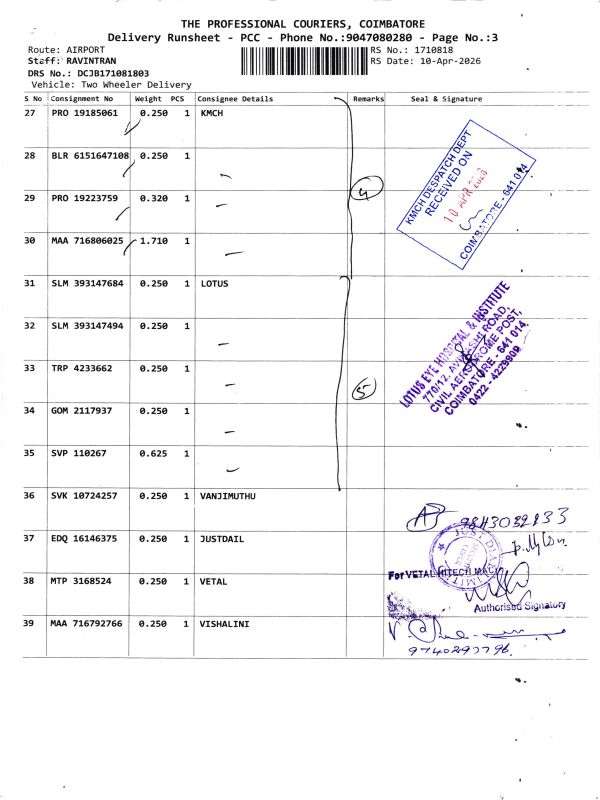 THE PROFESSIONAL COURIERS, COIMBATORE
Delivery Runsheet - PCC - Phone No.:9047080280 - Page No.:3
Route: AIRPORT RS No.: 1710818
Staff: RAVINTRAN RS Date: 10-Apr-2026
DRS No.: DCJB171081803
Vehicle: Two Wheeler Delivery
S No Consignment No Weight PCS Consignee Details Remarks Seal & Signature
27 PRO 19185061 0.250 1 KMCH
28 BLR 6151647108 0.250 1
29 PRO 19223759 0.320 1
30 MAA 716806025 1.710 1
4
KMCH DESPATCH DEPT
RECEIVED ON
10 APR 2026
COIMBATORE - 641 014
31 SLM 393147684 0.250 1 LOTUS
32 SLM 393147494 0.250 1
33 TRP 4233662 0.250 1
34 GOM 2117937 0.250 1
35 SVP 110267 0.625 1
5
LOTUS EYE HOSPITAL & INSTITUTE
770/12, AVINASHI ROAD,
CIVIL AERODROME POST,
COIMBATORE - 641 014
0422 - 4229909
36 SVK 10724257 0.250 1 VANJIMUTHU
9843032833
37 EDQ 16146375 0.250 1 JUSTDAIL
JUST DIAL LIMITED
38 MTP 3168524 0.250 1 VETAL
For VETAL HITECH MAC
Authorised Signatory
39 MAA 716792766 0.250 1 VISHALINI
9740293796.